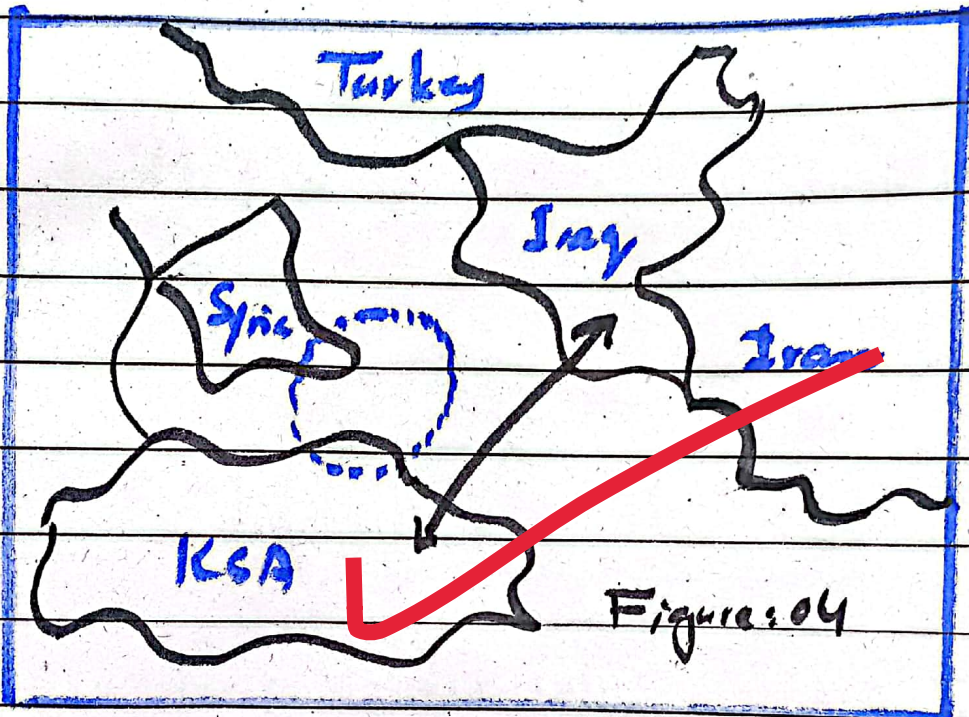 Turkey
Iraq
Syria
Iran
KSA
Figure: 04